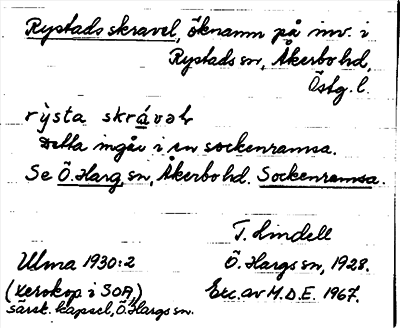 Rystads skravel, öknamn på inv. i
Rystads sn, Åkerbo hd,
Östg. l.
rỳsta skrávəl
Detta ingår i en sockenramsa.
Se Ö. Harg, sn, Åkerbo hd. Sockenramsa.
T. Lindell
Ulma 1930:2
Ö. Hargs sn, 1928.
(Xerokop i SOA,)
Exc. av M.D.E. 1967.
särsk. kapsel, Ö. Hargs sn.